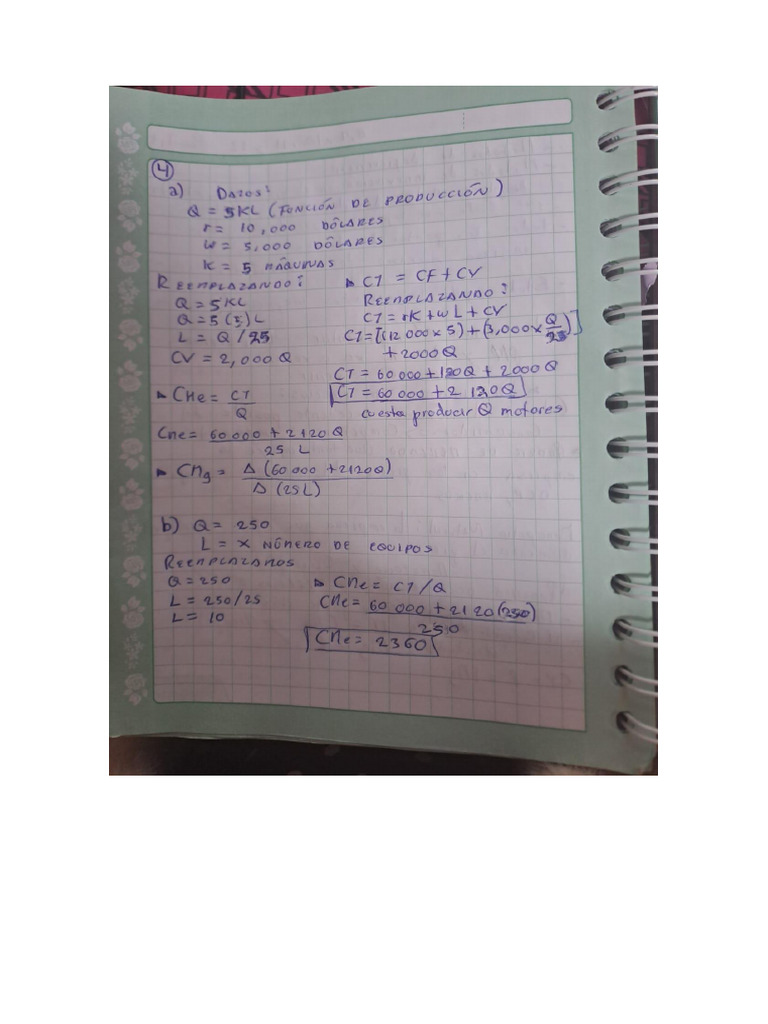 4
a) DATOS:
Q = 5KL (FUNCIÓN DE PRODUCCIÓN)
r = 10,000 DÓLARES
w = 5,000 DÓLARES
K = 5 MÁQUINAS
REEMPLAZANDO:
Q = 5KL
Q = 5(5)L
L = Q/25
CV = 2,000 Q
▸ CMe = CT
Q
CMe = 60 000 + 2120 Q
25 L
▸ CMg = Δ (60 000 + 2120Q)
Δ (25L)
▸ CT = CF + CV
REEMPLAZANDO:
CT = rK + wL + CV
CT = [(12 000 x 5) + (3,000 x Q/25)]
+ 2000Q
CT = 60 000 + 120Q + 2000Q
CT = 60 000 + 2 120Q
cuesta producir Q motores
b) Q = 250
L = x NÚMERO DE EQUIPOS
REEMPLAZAMOS
Q = 250
L = 250/25
L = 10
▸ CMe = CT/Q
CMe = 60 000 + 2120(250)
250
CMe = 2360